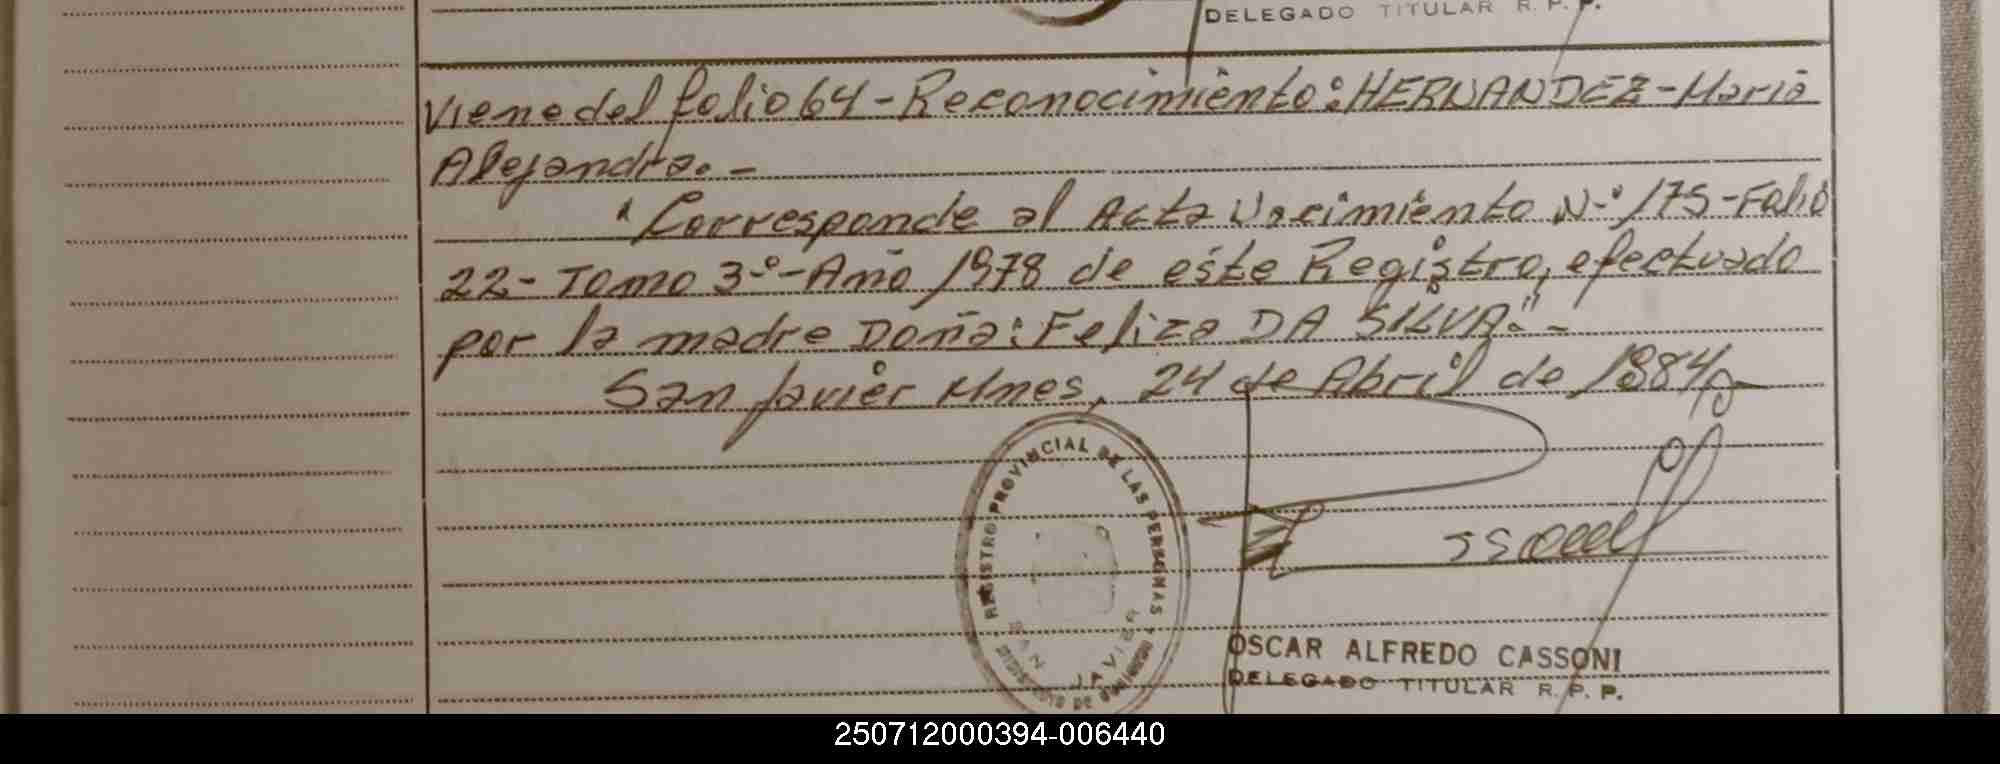 DELEGADO TITULAR R. P. P.
Viene del folio 64-Reconocimiento: HERNANDEZ-Maria
Alejandra.-
"Corresponde al Acta Nacimiento N° 175-Folio
22-Tomo 3°-Año 1978 de este Registro, efectuado
por la madre Doña: Feliza DA SILVA".-
San Javier Mnes, 24 de Abril de 1984
REGISTRO PROVINCIAL DE LAS PERSONAS
SAN JAVIER
OSCAR ALFREDO CASSONI
DELEGADO TITULAR R. P. P.
250712000394-006440